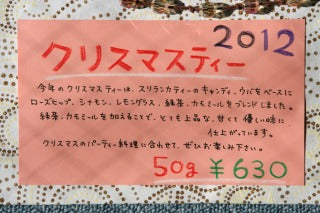 2012
クリスマスティー
今年のクリスマスティーは、スリランカティーのキャンディ、ウバをベースに
ローズヒップ、シナモン、レモングラス、緑茶、カモミールをブレンドしました。
緑茶、カモミールを加えることで、とても上品な、甘くて優しい味に
仕上がっています。
クリスマスのパーティー料理に合わせて、ぜひお楽しみ下さい。
50g ¥630